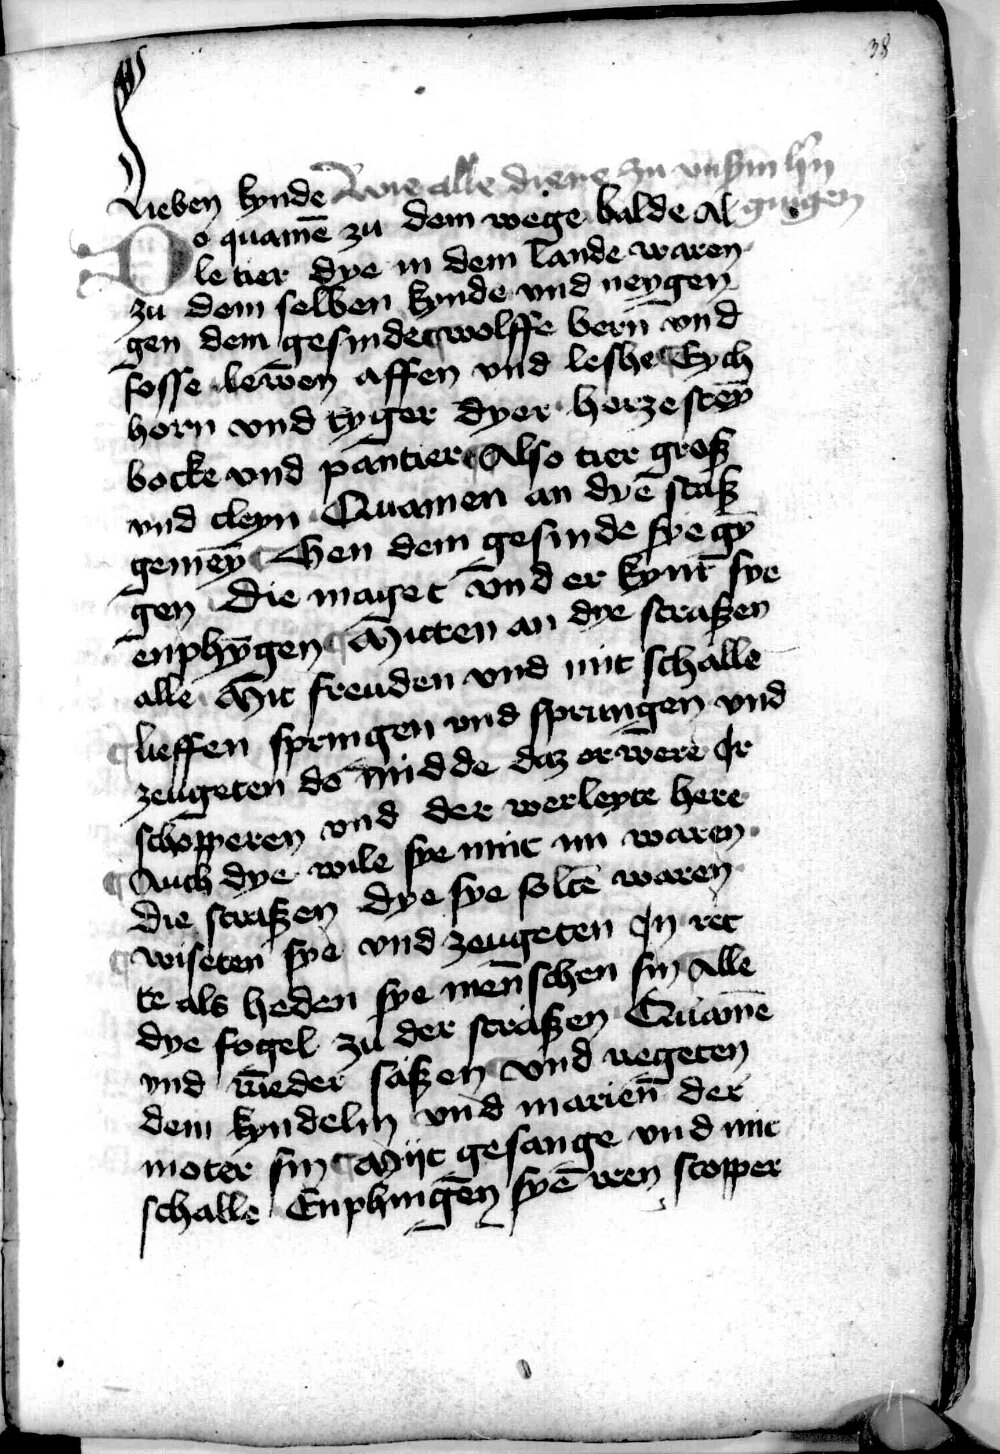 38
Lieben kynde Wie alle diere zu vnßm hrn
Do quamē zu dem wege balde Al gingen
le tier dye in dem lande waren
zu dem selben kynde vnd neygen
gen dem gesinde ¶ wolffe bern vnd
fosse lewen affen vnd leshe ¶ Eych
horn vnd tyger dyer herze stey
bocke vnd pantier ¶ Also tier groß
vnd cleyn Quamen an dye straß
gemey ¶ Hen dem gesinde sye gy
gen Die maget vnd er kynt sye
enphygen ¶ Mitten an dye straßen
alle Mit freuden vnd mit schalle
¶ lieffen springen vnd sprungen vnd
zeugeten do midde daz er were Jr
schopperen vnd der werleyte here
¶ Auch dye wile sye mit im waren
die straßen dye sye soltē waren
¶ wiseten sye vnd zeugeten Jn rec
te als heden sye menschen sin Alle
dye fogel zu der straßen Quamē
vnd nieder saßen vnd negeten
dem kyndelin vnd marien der
moter sin ¶ Mijt gesange vnd mit
schalle Enphingen syē iren stopper